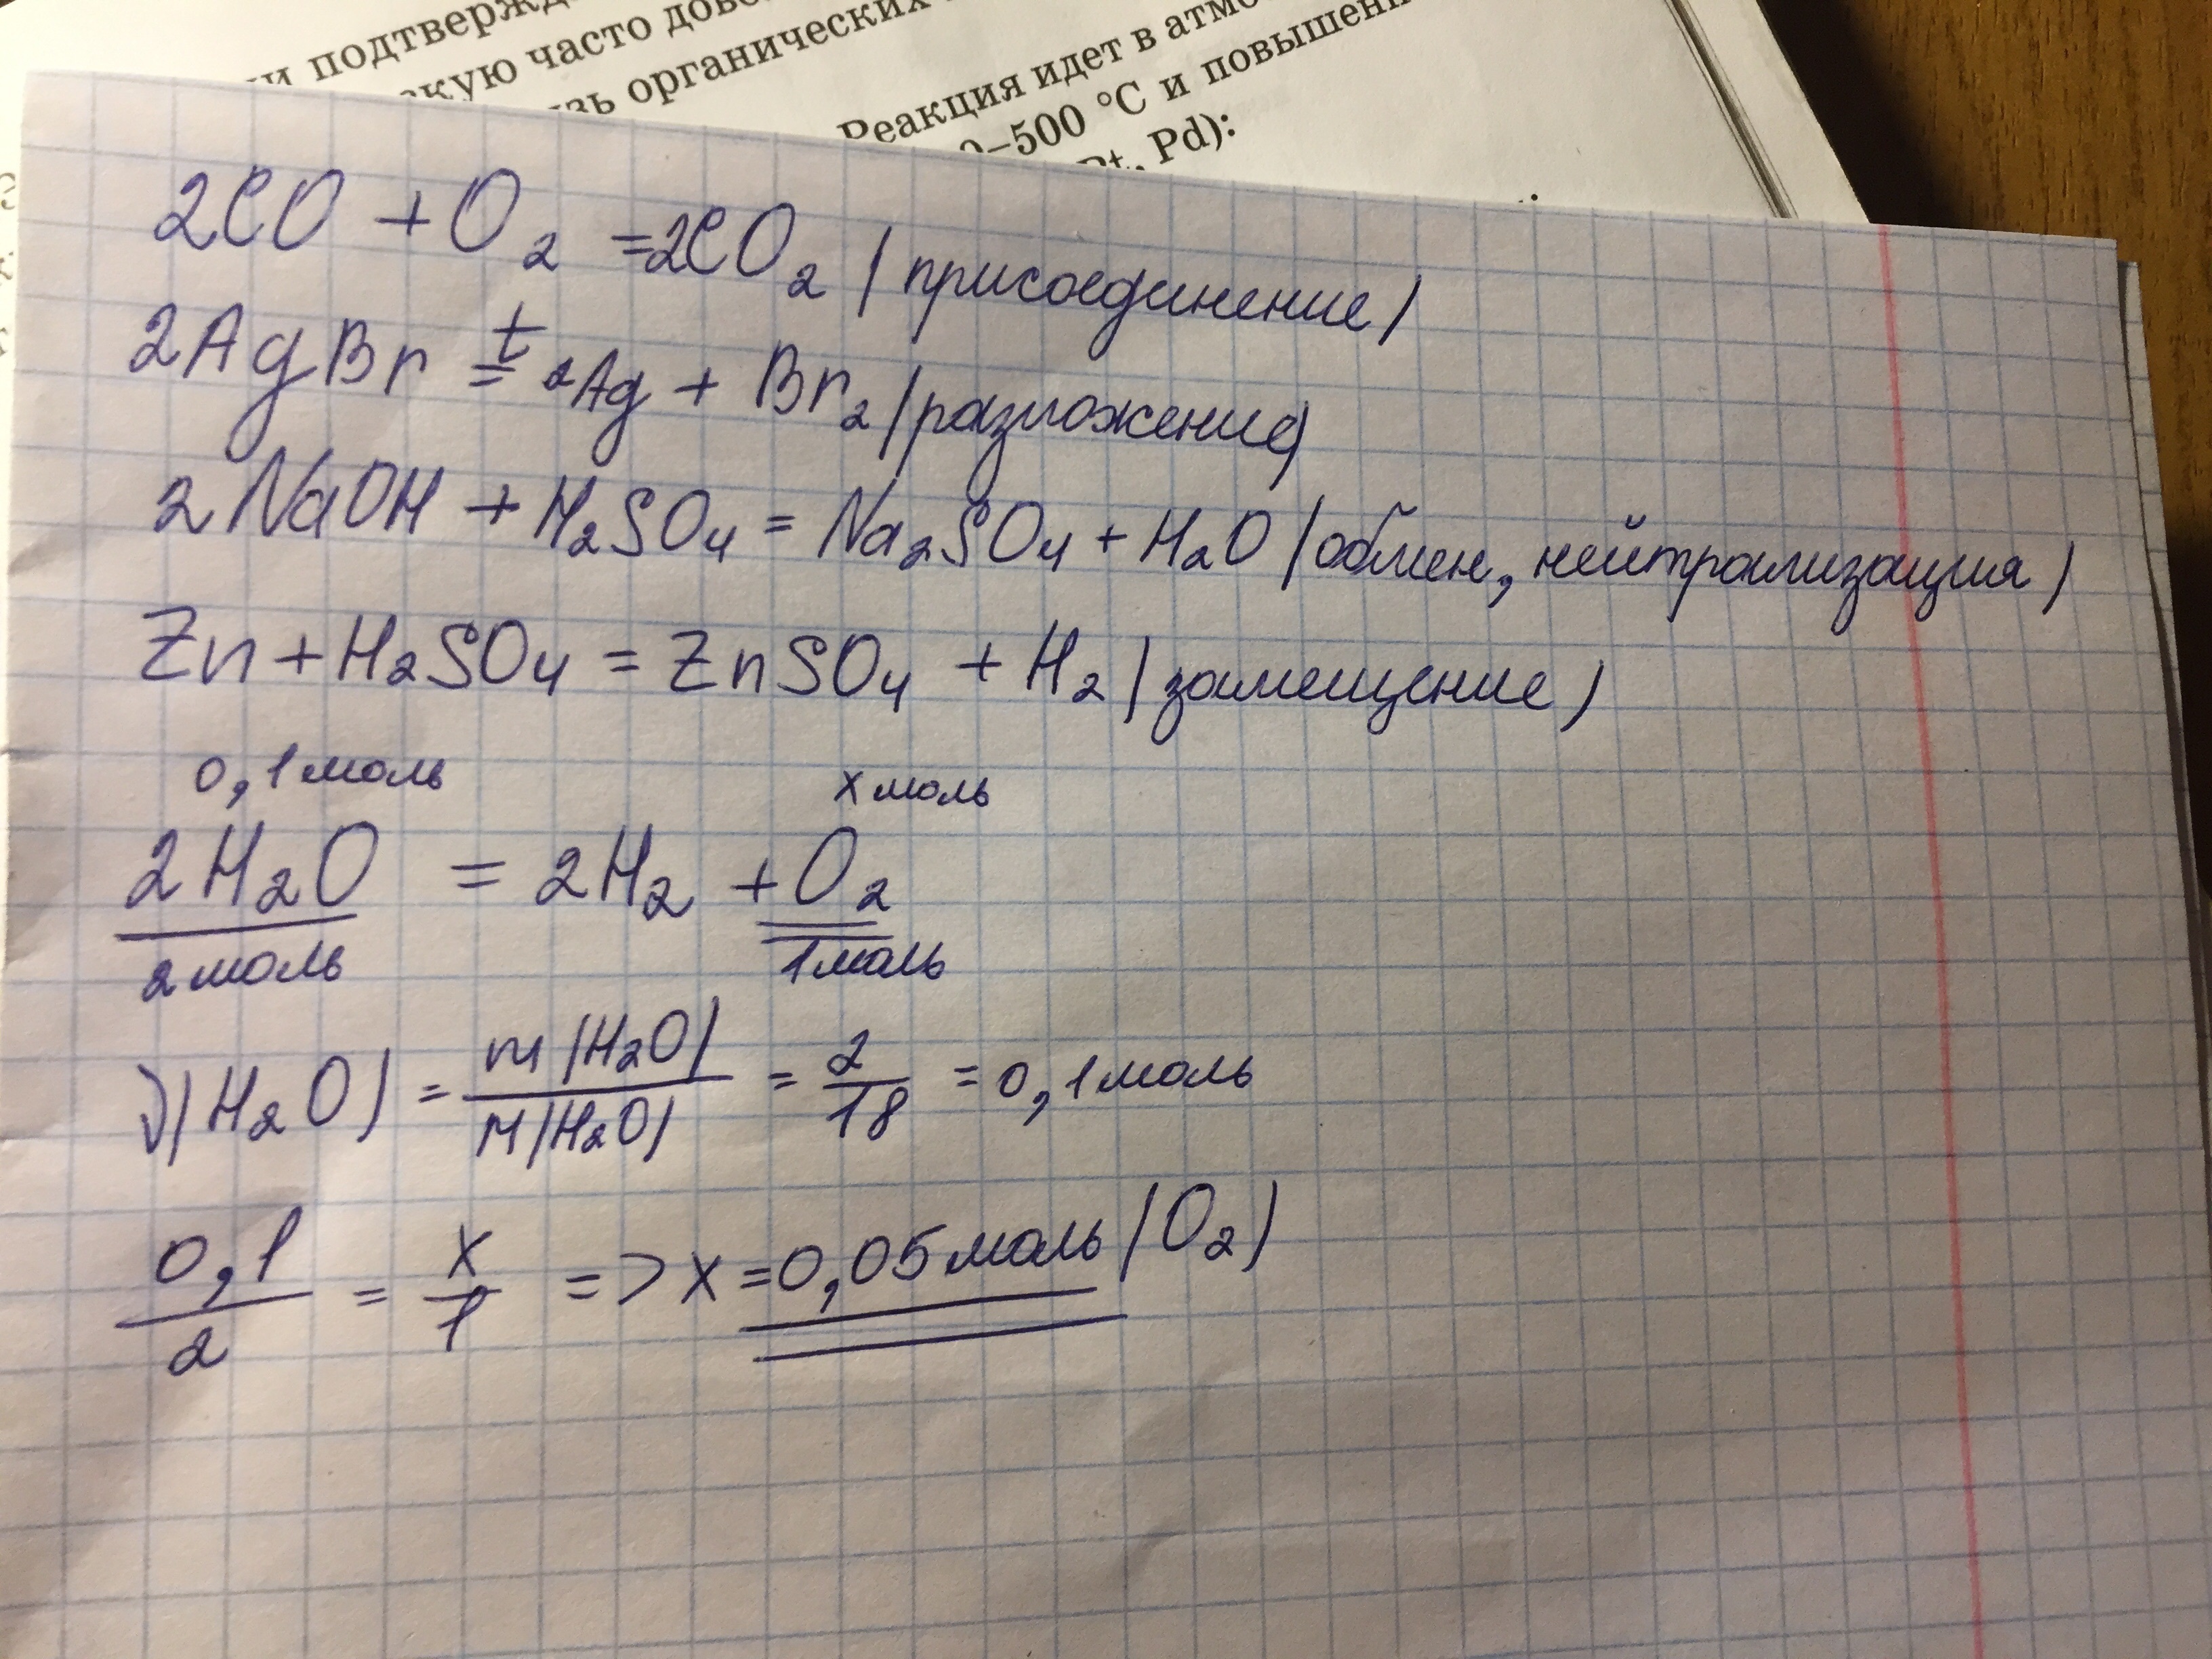 подтвержд
скую часто дово
зь органических
Реакция идет в атмо
0–500 °C и повышени
Pt, Pd):
2CO + O2 = 2CO2 (присоединение)
2AgBr t= 2Ag + Br2 (разложение)
2NaOH + H2SO4 = Na2SO4 + H2O (обмен, нейтрализация)
Zn + H2SO4 = ZnSO4 + H2 (замещение)
0,1 моль x моль
2H2O = 2H2 + O2
2 моль 1 моль
ν(H2O) = m(H2O)/M(H2O) = 2/18 = 0,1 моль
0,1/2 = x/1 => x = 0,05 моль (O2)